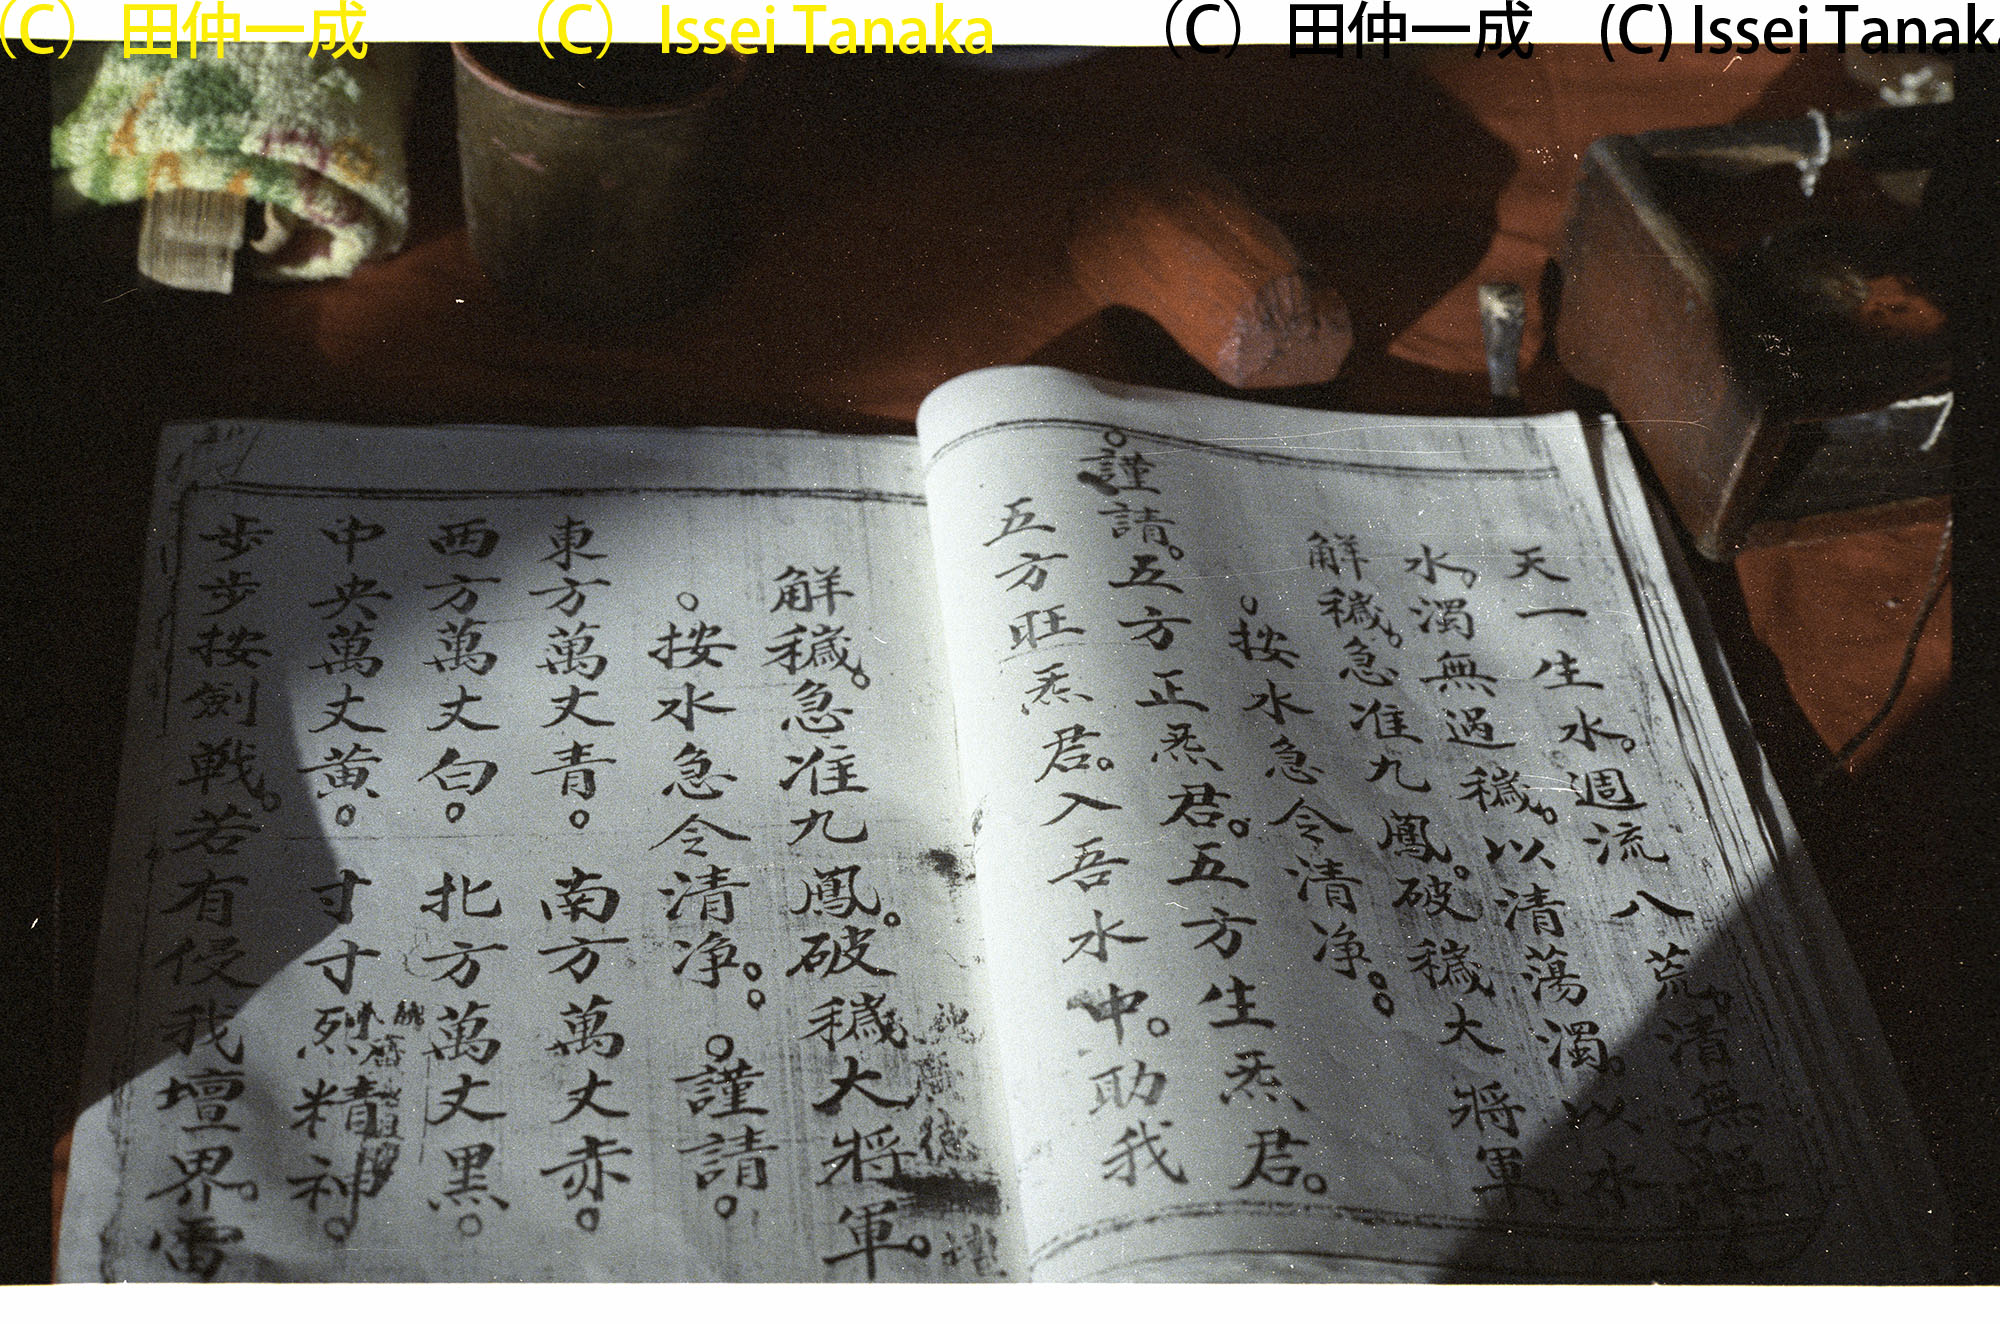 （C） 田仲一成
（C） Issei Tanaka
（C） 田仲一成
(C) Issei Tanaka
天一生水。週流八荒。清無
水。濁無過穢。以清蕩濁。以水
觧穢。急准九鳳。破穢大將軍。
。按水急令清淨。。
。謹請。五方正炁君。五方生炁君。
五方旺炁君。入吾水中。助我
觧穢。急准九鳳。破穢大將軍。
。按水急令清淨。。 。謹請。
東方萬丈青。 南方萬丈赤。
西方萬丈白。 北方萬丈黑。
中央萬丈黄。 寸寸烈精神。
步步按劍戰。若有侵我壇界。雷